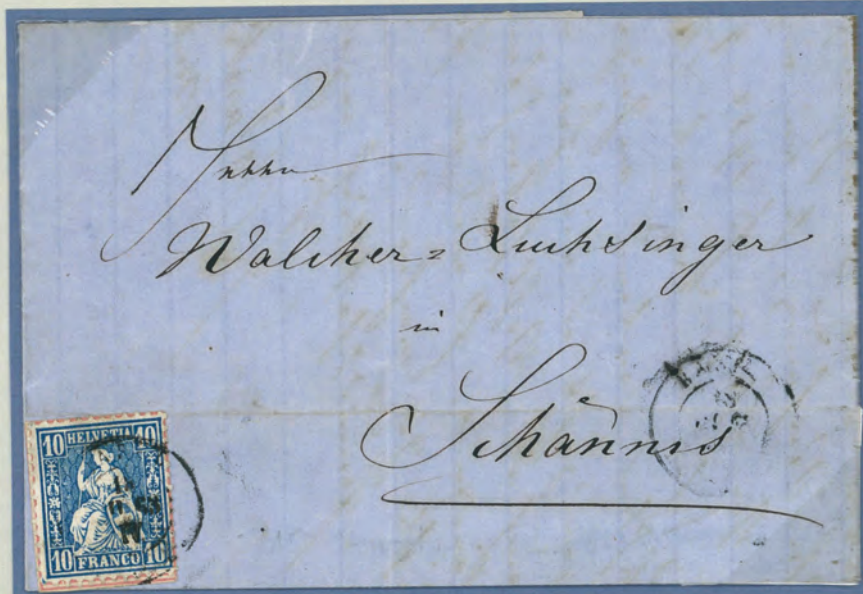 Herrn
Walcher=Luchsinger
in
Schännis
BASEL
10 HELVETIA 10
10 FRANCO 10